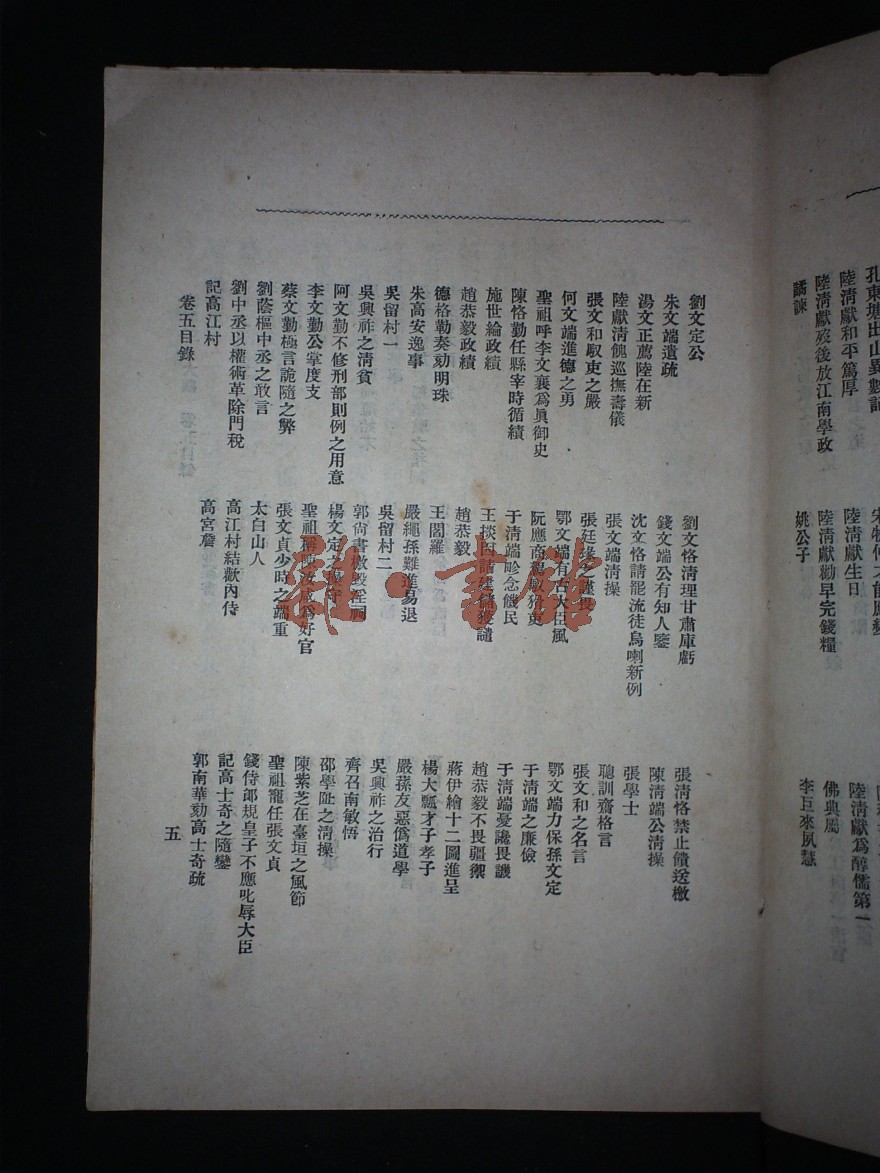 孔東塘出山異數記
陸清獻和平篤厚
陸清獻生日
陸清獻為醇儒第一
陸清獻歿後放江南學政
陸清獻勸早完錢糧
佛典屬
譎諫
姚公子
李巨來夙慧
劉文定公
劉文恪清理甘肅庫虧
張清恪禁止饋送檄
朱文端遺疏
錢文端公有知人鑒
陳清端公清操
湯文正薦陸在新
沈文恪請罷流徒烏喇新例
張學士
陸獻清餽巡撫壽儀
張文端清操
聰訓齋格言
張文和馭吏之嚴
張廷之謹畏
張文和之名言
何文端進德之勇
鄂文端有古大臣風
鄂文端力保孫文定
聖祖呼李文襄為眞御史
阮應商親敏猾吏
于清端之廉儉
陳恪勤任縣宰時循績
于清端軫念饑民
于清端憂讒畏譏
施世綸政績
王掞因請建儲獲譴
趙恭毅不畏疆禦
趙恭毅政績
趙恭毅
蔣伊繪十二圖進呈
德格勒奏劾明珠
王閻羅
楊大瓢才子孝子
朱高安逸事
嚴繩孫難進易退
嚴蓀友惡僞道學
吳留村一
吳留村二
吳興祚之治行
吳興祚之清貧
郭尚書檄毀淫祠
齊召南敏悟
阿文勤不修刑部則例之用意
楊文定之操守
邵學阯之清操
李文勤公掌度支
聖祖稱陳汝咸為好官
陳紫芝在臺垣之風節
蔡文勤極言詭隨之弊
張文貞少時之端重
聖祖寵任張文貞
劉蔭樞中丞之敢言
太白山人
錢侍郎規皇子不應叱辱大臣
劉中丞以權術革除門稅
高江村結歡內侍
記高士奇之隨鑾
記高江村
高宮詹
郭南華劾高士奇疏
卷五目錄
五
雅·書館